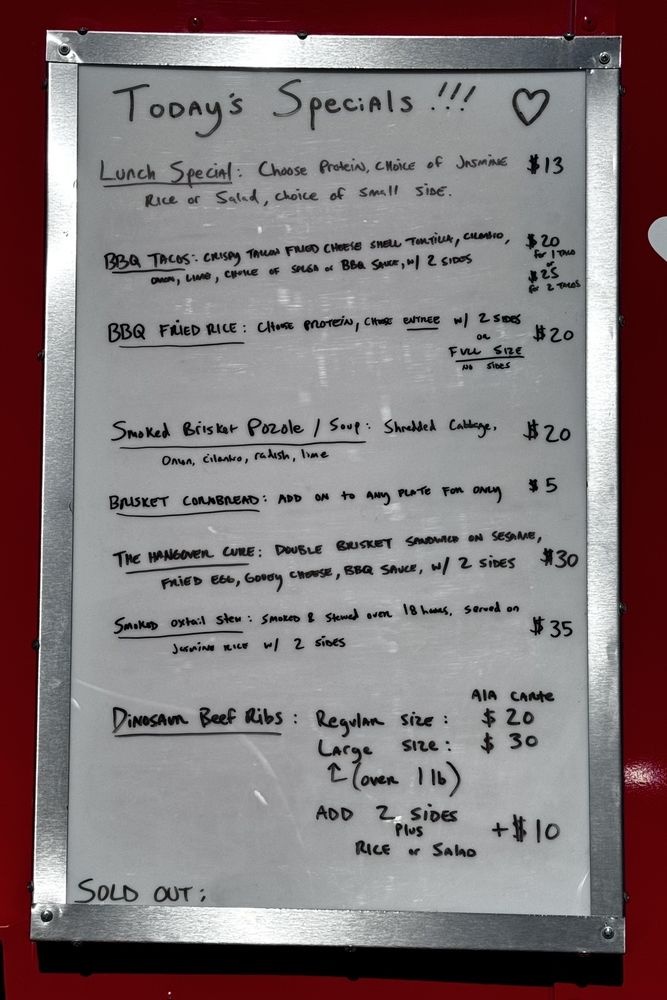 Today's Specials !!! ♡
Lunch Special: Choose Protein, choice of Jasmine $13
Rice or Salad, choice of small side.
BBQ Tacos: Crispy Tallow Fried Cheese Shell Tortilla, cilantro, $20
for 1 taco
onion, lime, choice of salsa or BBQ Sauce, w/ 2 sides or
$25
for 2 tacos
BBQ Fried Rice: Choose protein, choose entree w/ 2 sides $20
or
Full Size
no sides
Smoked Brisket Pozole / Soup: Shredded Cabbage, $20
Onion, cilantro, radish, lime
Brisket Cornbread: Add on to any plate for only $5
The Hangover Cure: Double Brisket Sandwich on Sesame, $30
Fried Egg, Gooey Cheese, BBQ Sauce, w/ 2 sides
Smoked oxtail stew: Smoked & Stewed over 18 hours, served on $35
Jasmine rice w/ 2 sides
AlA CARTE
Dinosaur Beef Ribs: Regular size: $20
Large size: $30
↑ (over 1 lb)
ADD 2 Sides
Plus +$10
Rice or Salad
SOLD OUT: